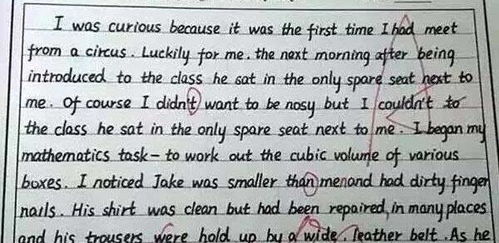 I was curious because it was the first time I had meet
from a circus. Luckily for me. the next morning after being
introduced to the class he sat in the only spare seat next to
me. Of course I didn't want to be nosy but I couldn't to
the class he sat in the only spare seat next to me. I began my
mathematics task - to work out the cubic volume of various
boxes. I noticed Jake was smaller than menand had dirty finger
nails. His shirt was clean but had been repaired, in many places
and his trousers were hold up by a wide, leather belt. As he